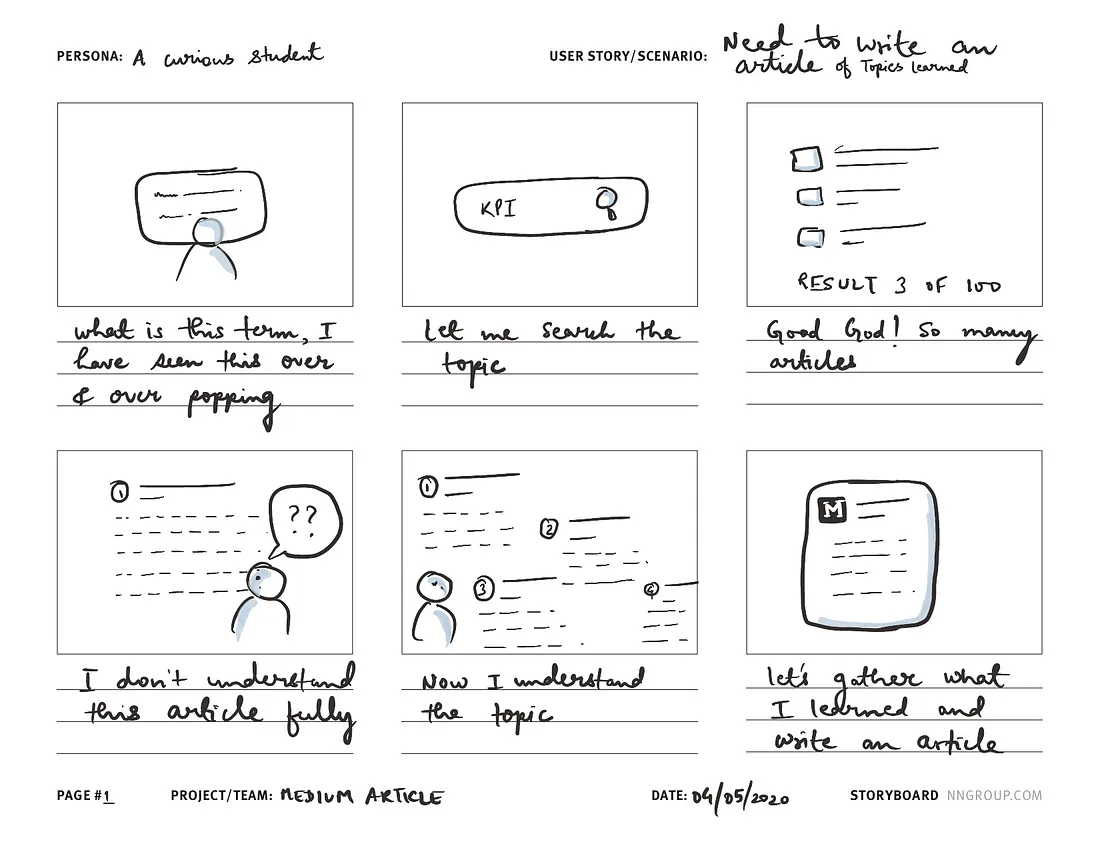 PERSONA: A curious student
USER STORY/SCENARIO: Need to write an
article of Topics learned
KPI
RESULT 3 OF 100
what is this term, I
have seen this over
& over popping
let me search the
topic
Good God! So many
articles
1
??
1
2
3
4
M
I don't understand
this article fully
Now I understand
the topic
let's gather what
I learned and
write an article
PAGE #1 PROJECT/TEAM: MEDIUM ARTICLE DATE: 04/05/2020 STORYBOARD NNGROUP.COM